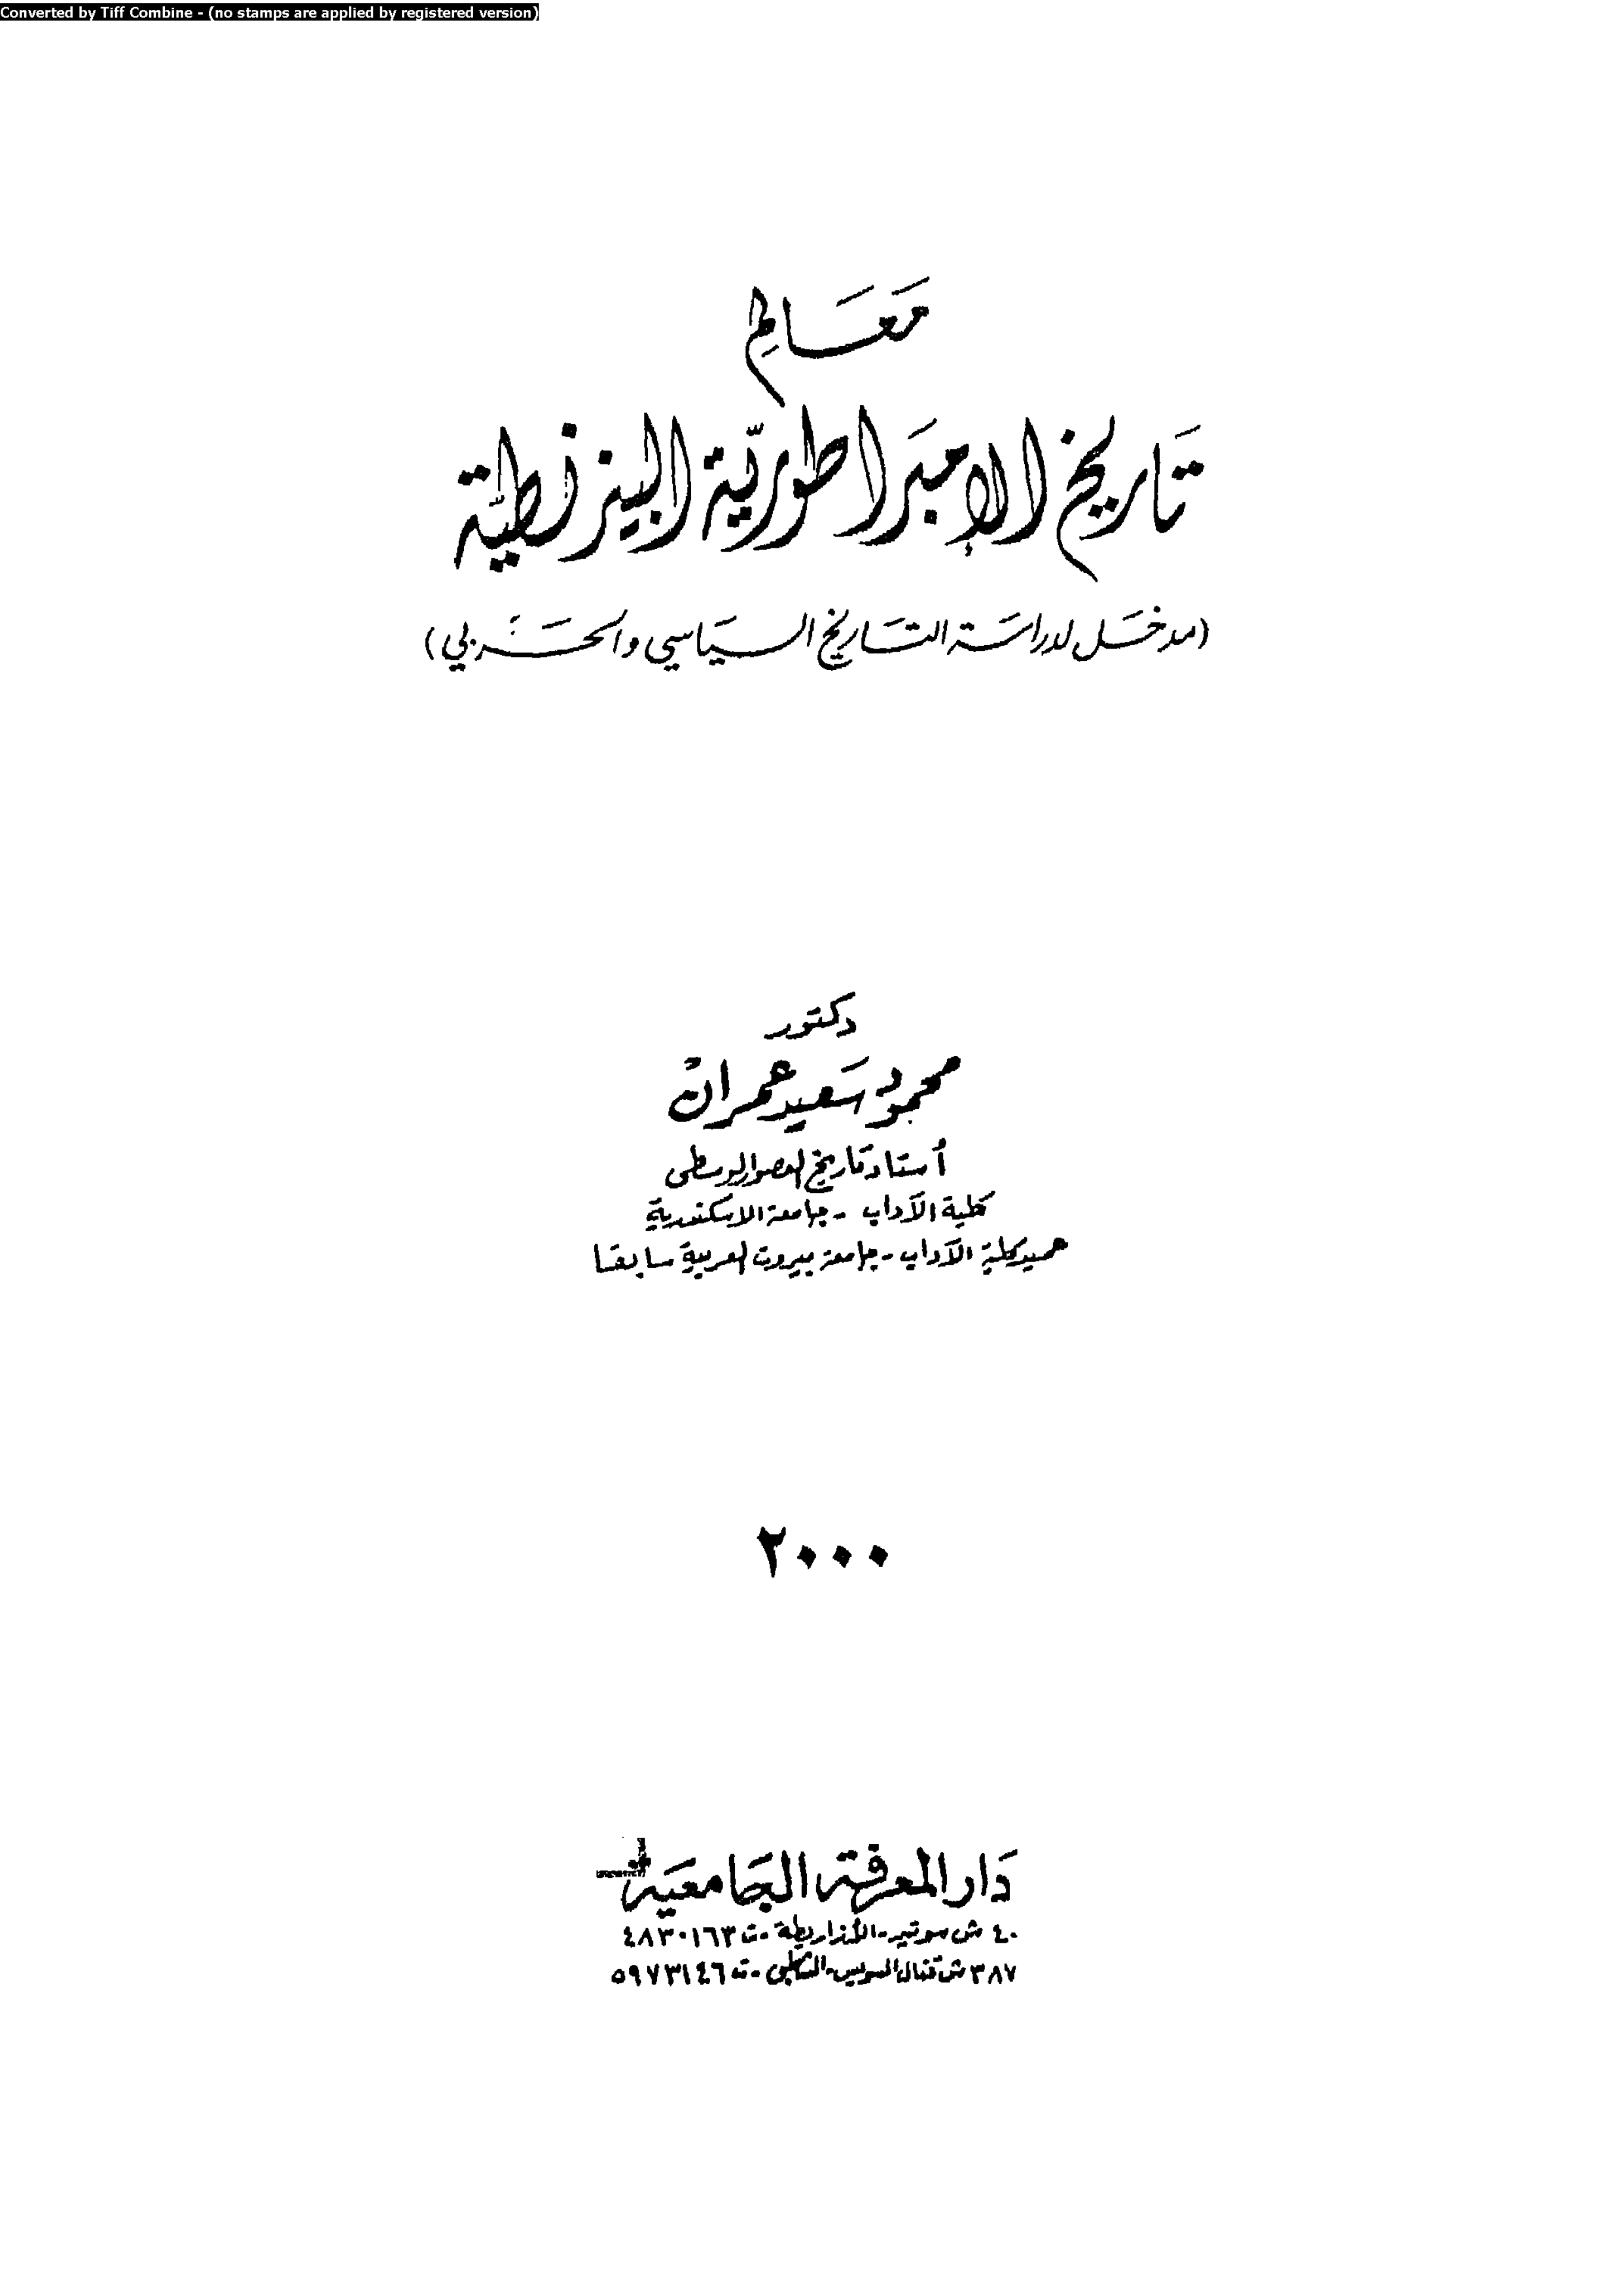 Converted by Tiff Combine - (no stamps are applied by registered version)
مَعَالِم
تَاريخ الإمبَراطوريّة البيزنطيّة
(مدخَل لدراسَة التَاريخ السيَاسي والحَربي)
دكتَور
محمود سَعيد عمران
أستاذ تاريخ العصور الوسطى
كلية الآداب - جامعة الاسكندرية
عميد كلية الآداب - جامعة بيروت العربية سابقا
٢٠٠٠
دَار المعرفة الجَامعيَة
٤٠ ش سوتير - الأزاريطة - ت ٤٨٣٠١٦٣
٣٨٧ ش قنال السويس - الشاطبى - ت ٥٩٧٣١٤٦